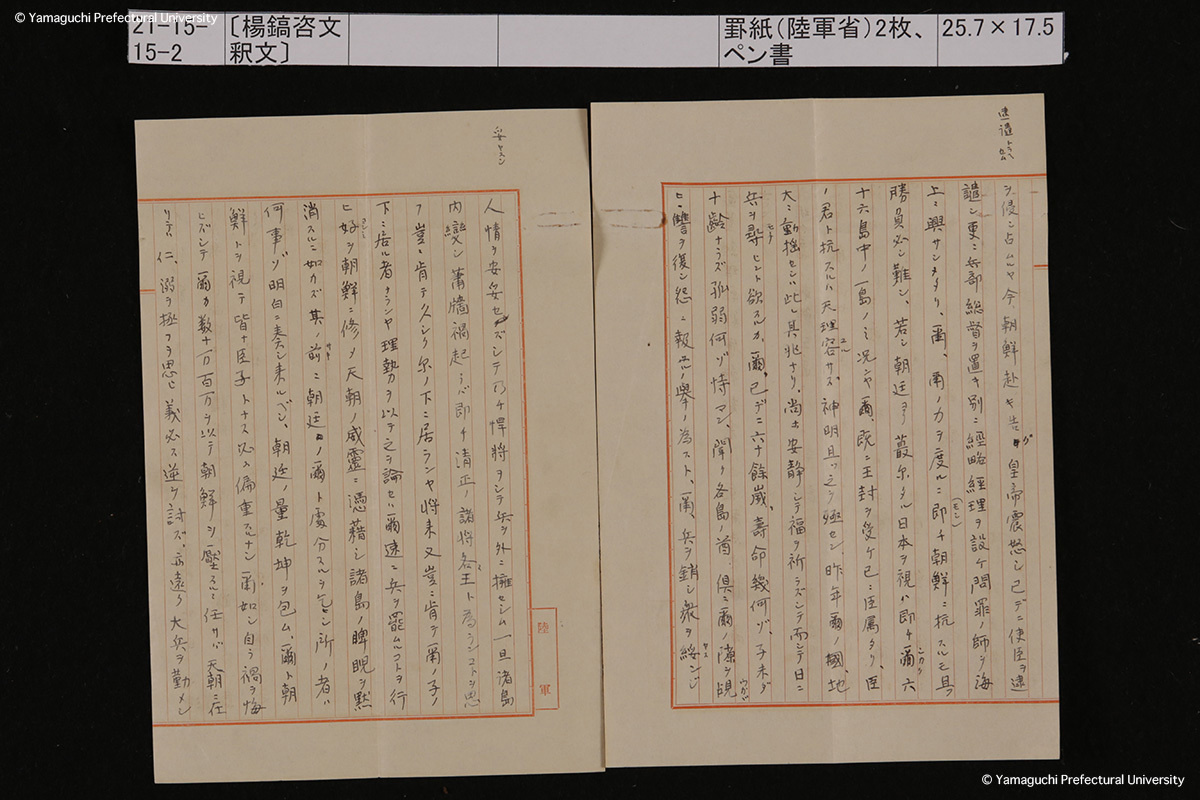 © Yamaguchi Prefectural University
21-15-
15-2
〔楊鎬咨文
釈文〕
罫紙(陸軍省)2枚、
ペン書
25.7×17.5
逮譴
ヲ侵シ占ムルヤ今、朝鮮赴キ告グ皇帝震怒シ已デニ使臣ヲ逮
譴シ更ニ兵部総督ヲ置キ別ニ經略經理ヲ設ケ問罪ノ師ヲ海
上ニ興サシメタリ、爾、爾ノ力ヲ度ルニ即チ朝鮮ニ抗スルモ且ツ
(モシ)
勝負必シ難シ、若シ朝廷ヨリ蕞尓タル日本ヲ視バ即チ爾六
十六島中ノ一島ノミ況ンヤ爾、既ニ王封ヲ受ケ已ニ臣属タリ、臣
ノ君ト抗スルハ天理容サズ、神明且ツ之ヲ殛セン、昨年爾ノ國、地
大ニ動揺セシハ此レ其兆ナリ、尚ホ安静シテ福ヲ祈ラズシテ而シテ日ニ
兵ヲ尋ヒント欲スルカ、爾、已デニ六十餘歳、壽命幾何ゾ、子未ダ
十齢ナラズ孤弱何ゾ恃マン、聞ク各島ノ酋、倶ニ爾ノ隙ヲ覘
ヒ、讐ヲ復シ怨ニ報ズルノ擧ノ為スト、爾、兵ヲ銷シ衆ヲ綏ンジ
妥ヤスン
人情ヲ安妥セズシテ乃チ悍將ヲシテ兵ヲ外ニ擁セシム一旦諸島
内變シ蕭牆禍起ラバ即チ清正ノ諸將各王ト為ランコトヲ思
フ豈ニ肯テ久シク尓ノ下ニ居ランヤ将来又豈ニ肯テ爾ノ子ノ
下ニ居ル者タランヤ理勢ヲ以テ之ヲ論セバ爾速ニ兵ヲ罷ムルコトヲ行
ヒ好ヲ朝鮮ニ修メ天朝ノ威靈ニ憑藉シ諸島ノ睥睨ヲ黙
消スルニ如カズ其ノ前ニ朝廷ノ爾ト處分スルヲ乞シ所ノ者ハ
何事ゾ明白ニ奏シ来ルベシ、朝廷ノ量乾坤ヲ包ム、爾ト朝
鮮トヲ視テ皆ナ臣子トナス必ス偏重スルナシ爾如シ自ラ禍ヲ悔
ヒズシテ爾カ数十万百万ヲ以テ朝鮮ヲ壓スルニ任サバ天朝ニ在
リテハ仁、溺ヲ拯フヲ思ヒ義必ス逆ヲ討ズ、亦遠ク大兵ヲ勤メン
陸軍
© Yamaguchi Prefectural University